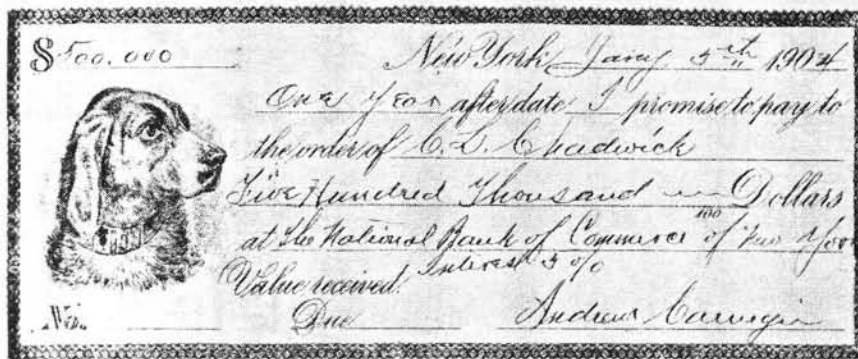 $500.000 New York Jany 5th 1904
One Year after date I promise to pay to
the order of C. L. Chadwick
Five Hundred Thousand Dollars
100
at the National Bank of Commerce of New York
Interest 5 %
Value received.
No. Due Andrew Carnegie